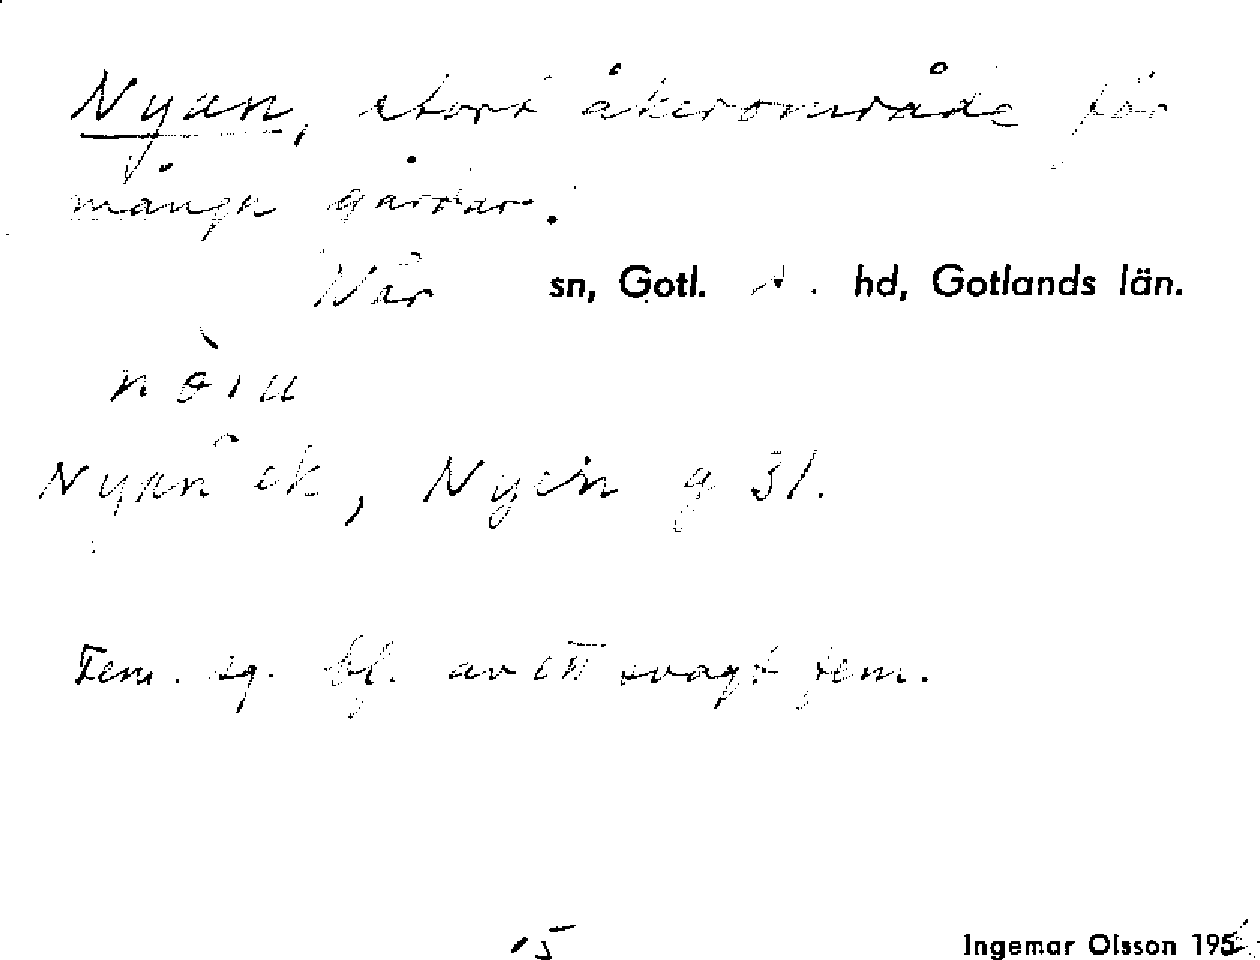 Nyan, stort åkerområde för
många gårdar.
När sn, Gotl. s. hd, Gotlands län.
Nyan ek, Nyen g 31.
Fem. sg. bf. av ett svagt fem.
15
Ingemar Olsson 195